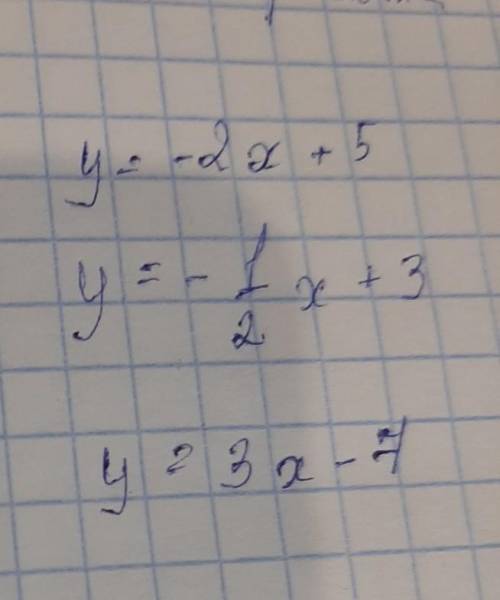 y = -2x + 5
y = - 1/2 x + 3
y = 3x - 7